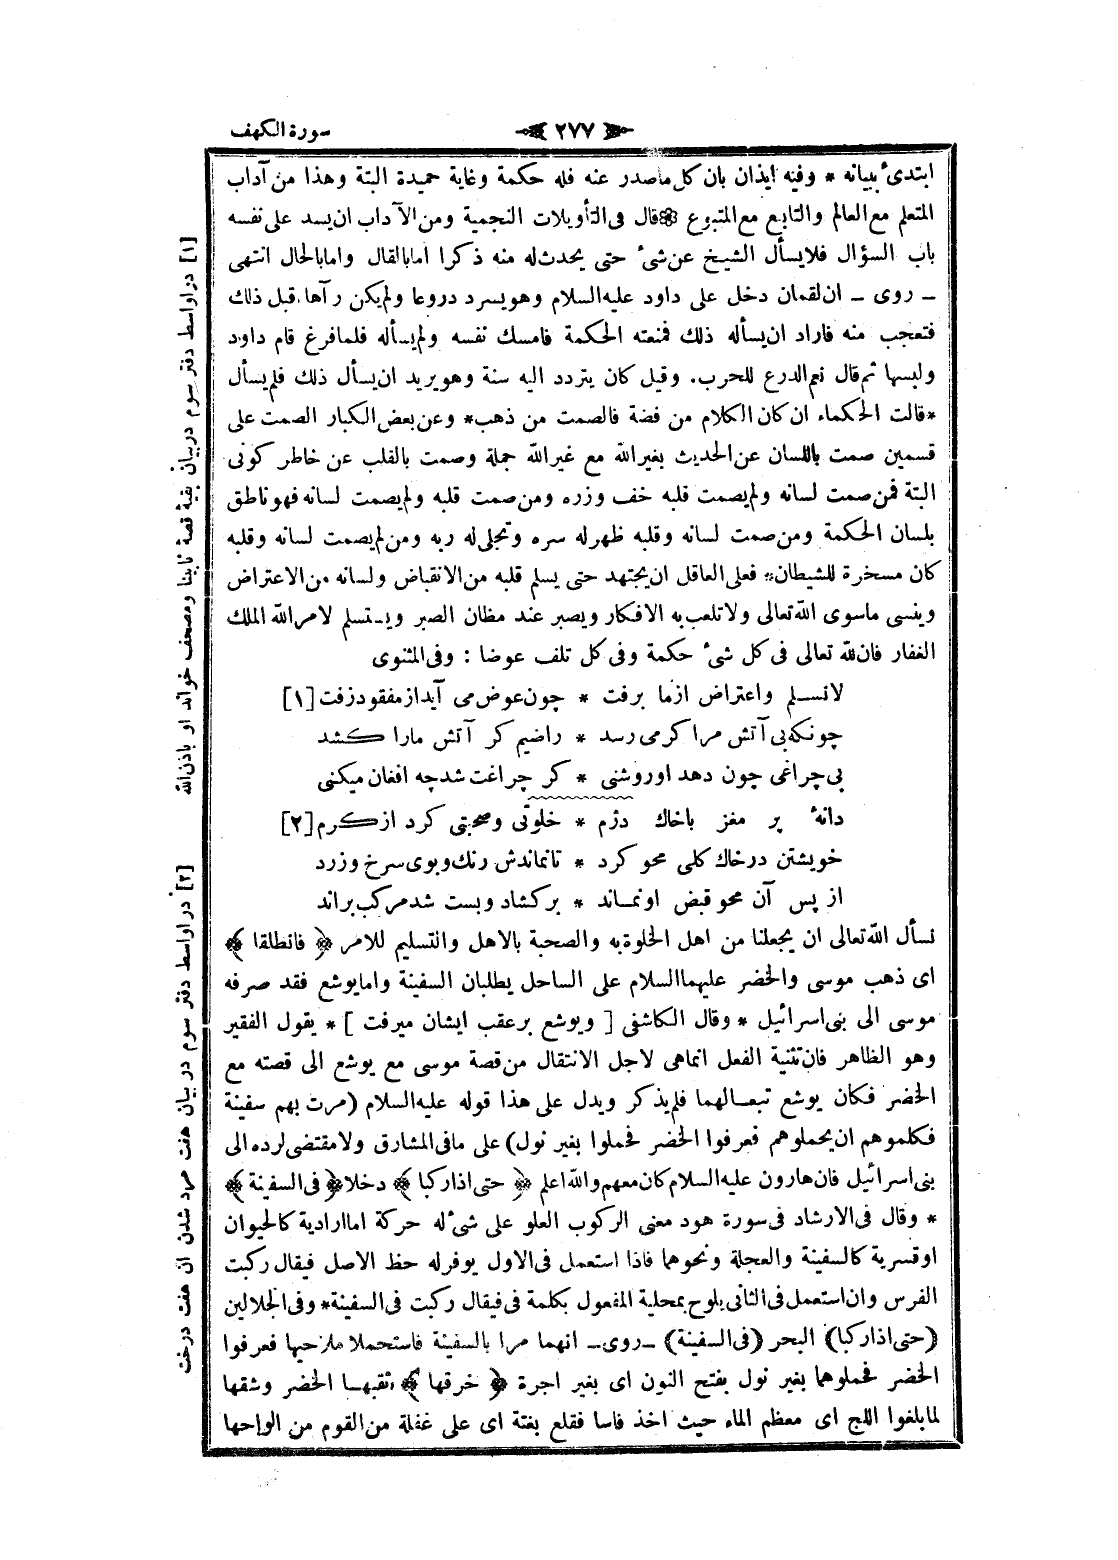 سورة الكهف
﴿ ٢٧٧ ﴾
ابتدئ ببيانه * وفيه ايذان بان كل ماصدر عنه فله حكمة وغاية حميدة البتة وهذا من آداب
المتعلم مع العالم والتابع مع المتبوع * قال فى التأويلات النجمية ومن الآداب ان يسد على نفسه
باب السؤال فلا يسأل الشيخ عن شئ حتى يحدث له منه ذكرا اما بالقال واما بالحال انتهى
ـ روى ـ ان لقمان دخل على داود عليه السلام وهو يسرد دروعا ولم يكن رآها قبل ذلك
فتعجب منه فاراد ان يسأله ذلك فمنعته الحكمة فامسك نفسه ولم يسأله فلما فرغ قام داود
ولبسها ثم قال نعم الدرع للحرب. وقيل كان يتردد اليه سنة وهو يريد ان يسأل ذلك فلم يسأل
*قالت الحكماء ان كان الكلام من فضة فالصمت من ذهب* وعن بعض الكبار الصمت على
قسمين صمت باللسان عن الحديث بغير الله مع غير الله جملة وصمت بالقلب عن خاطر كونى
البتة فمن صمت لسانه ولم يصمت قلبه خف وزره ومن صمت قلبه ولم يصمت لسانه فهو ناطق
بلسان الحكمة ومن صمت لسانه وقلبه ظهر له سره وتجلى له ربه ومن لم يصمت لسانه وقلبه
كان مسخرة للشيطان * فعلى العاقل ان يجتهد حتى يسلم قلبه من الانقباض ولسانه من الاعتراض
وينسى ماسوى الله تعالى ولا تلعب به الافكار ويصبر عند مظان الصبر ويستسلم لامر الله الملك
الغفار فان لله تعالى فى كل شئ حكمة وفى كل تلف عوضا : وفى المثنوى
لانسلم واعتراض ازما برفت * چون عوض مى آيد از مفقود زفت [١]
چونكه بى آتش مرا كرمى رسد * راضيم كر آتش مارا كشد
بى چراغى چون دهد او روشنى * كر چراغت شد چه افغان ميكنى
دانهٔ پر مغز باخاك دژم * خلوتى وصحبتى كرد از كرم [٢]
خويشتن در خاك كلى محو كرد * تا نماندش رنك وبوى سرخ وزرد
از پس آن محو قبض او نماند * بركشاد وبست شد مركب براند
نسأل الله تعالى ان يجعلنا من اهل الخلوة به والصحبة بالاهل والتسليم للامر ﴿ فانطلقا ﴾
اى ذهب موسى والخضر عليهما السلام على الساحل يطلبان السفينة واما يوشع فقد صرفه
موسى الى بنى اسرائيل * وقال الكاشفى [ ويوشع بر عقب ايشان ميرفت ] * يقول الفقير
وهو الظاهر فان تثنية الفعل انما هى لاجل الانتقال من قصة موسى مع يوشع الى قصته مع
الخضر فكان يوشع تبعا لهما فلم يذكر ويدل على هذا قوله عليه السلام (مرت بهم سفينة
فكلموهم ان يحملوهم فعرفوا الخضر فحملوا بغير نول) على ما فى المشارق ولا مقتضى لرده الى
بنى اسرائيل فان هارون عليه السلام كان معهم والله اعلم ﴿ حتى اذا ركبا ﴾ دخلا ﴿ فى السفينة ﴾
* وقال فى الارشاد فى سورة هود معنى الركوب العلو على شئ له حركة اما ارادية كالحيوان
او قسرية كالسفينة والعجلة ونحوهما فاذا استعمل فى الاول يوفر له حظ الاصل فيقال ركبت
الفرس وان استعمل فى الثانى يلوح بمحلية المفعول بكلمة فى فيقال ركبت فى السفينة* وفى الجلالين
(حتى اذا ركبا) البحر (فى السفينة) ـ روى ـ انهما مرا بالسفينة فاستحملا ملاحيها فعرفوا
الخضر فحملوهما بغير نول بفتح النون اى بغير اجرة ﴿ خرقها ﴾ ثقبها الخضر وشقها
لما بلغوا اللج اى معظم الماء حيث اخذ فاسا فقلع بغتة اى على غفلة من القوم من الواحها
[١] در اواسط دفتر سوم در بيان بقيهٔ قصهٔ نابينا ومصحف خواندن او باذن الله
[٢] در اواسط دفتر سوم در بيان هفت مرد شدن آن هفت درخت